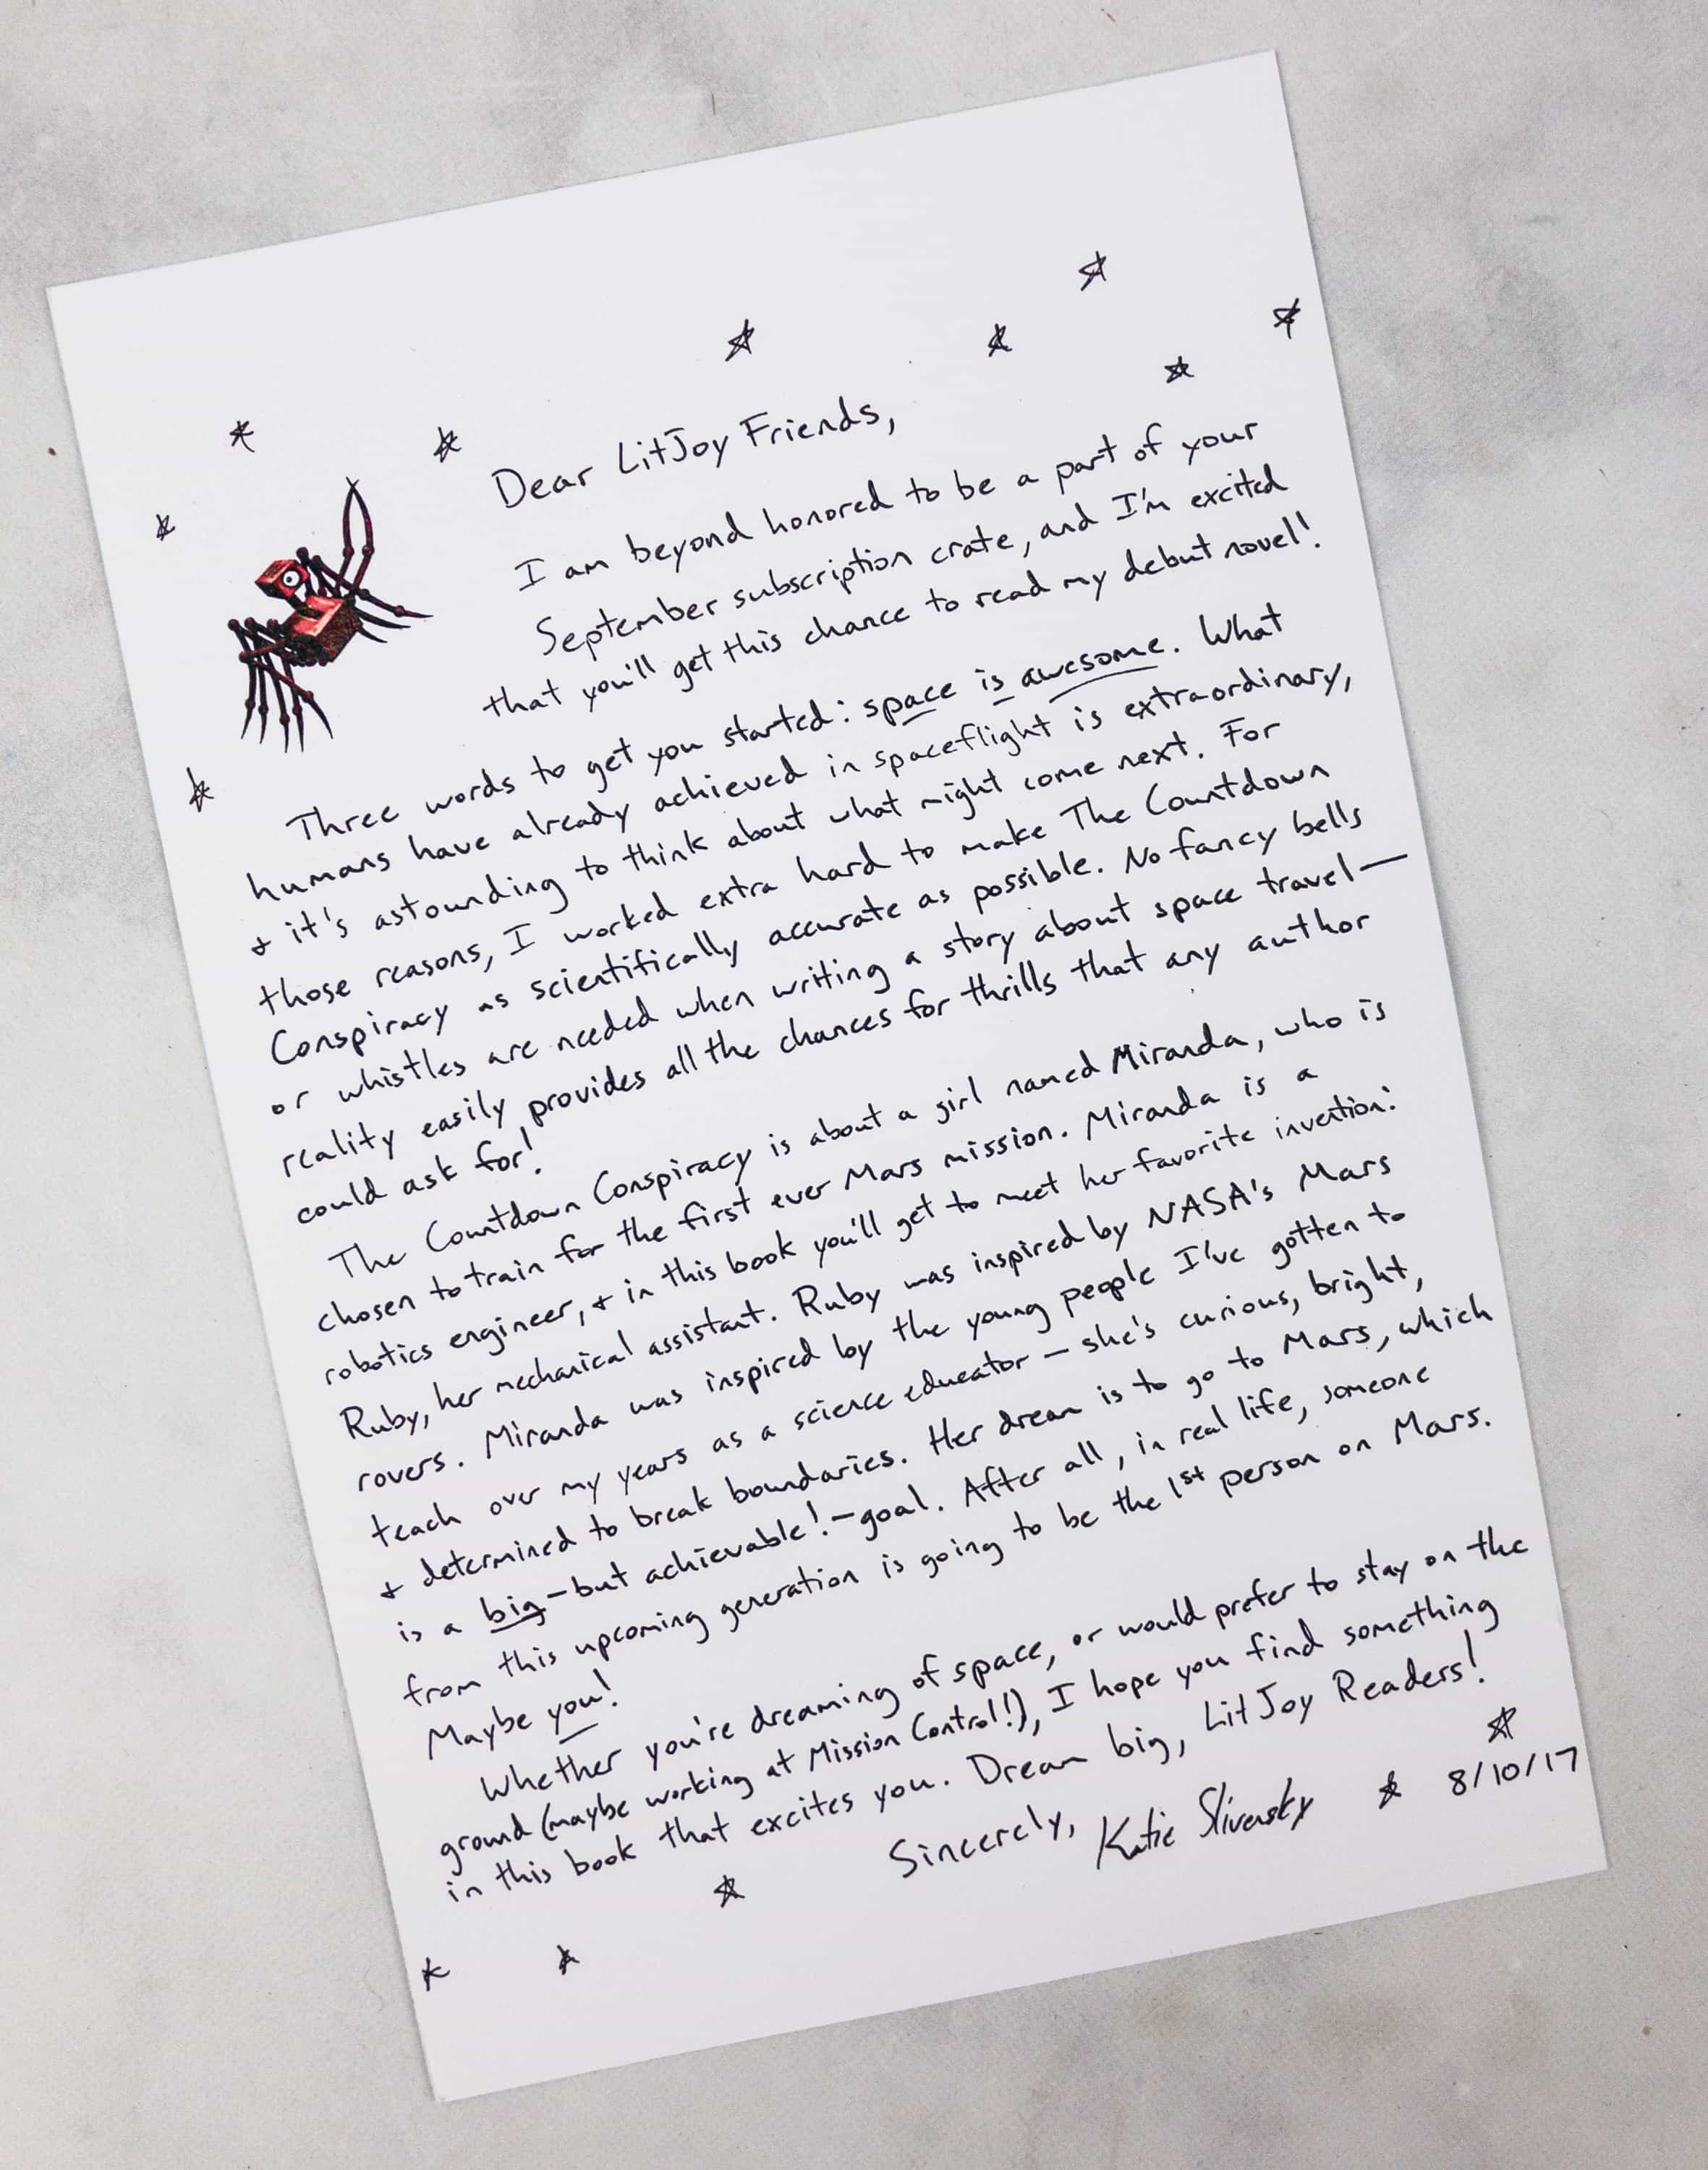 Dear LitJoy Friends,
I am beyond honored to be a part of your
September subscription crate, and I'm excited
that you'll get this chance to read my debut novel!
Three words to get you started: space is awesome. What
humans have already achieved in spaceflight is extraordinary,
& it's astounding to think about what might come next. For
those reasons, I worked extra hard to make The Countdown
Conspiracy as scientifically accurate as possible. No fancy bells
or whistles are needed when writing a story about space travel—
reality easily provides all the chances for thrills that any author
could ask for!
The Countdown Conspiracy is about a girl named Miranda, who is
chosen to train for the first ever Mars mission. Miranda is a
robotics engineer, & in this book you'll get to meet her favorite invention:
Ruby, her mechanical assistant. Ruby was inspired by NASA's Mars
rovers. Miranda was inspired by the young people I've gotten to
teach over my years as a science educator — she's curious, bright,
& determined to break boundaries. Her dream is to go to Mars, which
is a big—but achievable!—goal. After all, in real life, someone
from this upcoming generation is going to be the 1st person on Mars.
Maybe you!
Whether you're dreaming of space, or would prefer to stay on the
ground (maybe working at Mission Control!), I hope you find something
in this book that excites you. Dream big, LitJoy Readers!
Sincerely, Katie Slivensky 8/10/17